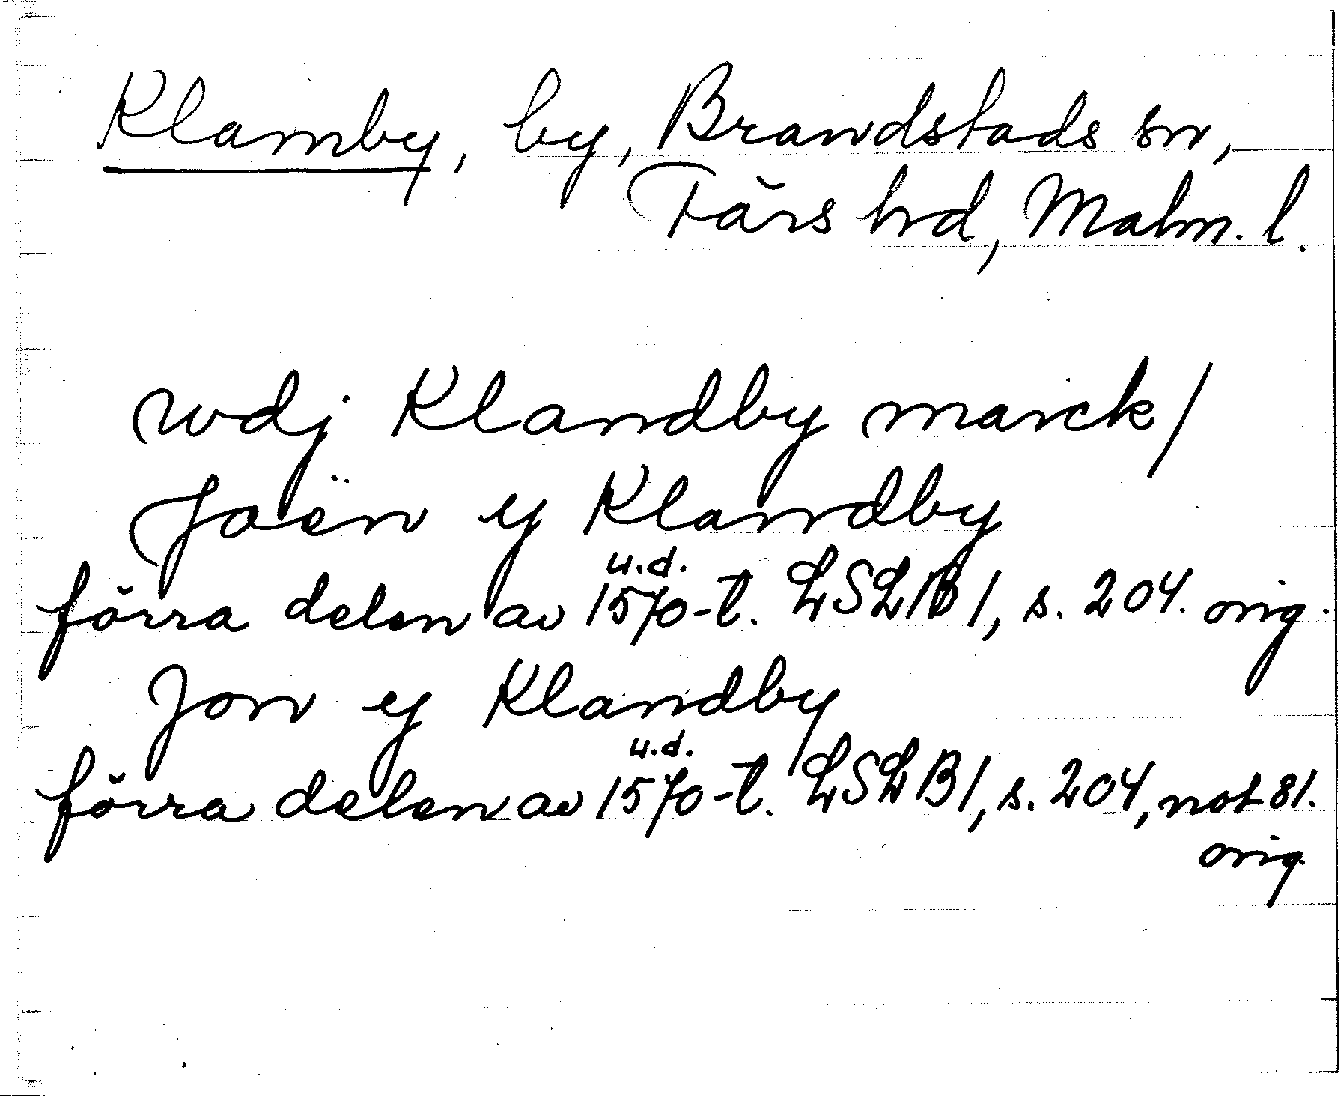 Klamby, by, Brandstads sn,
Färs hrd, Malm. l.
wdj Klandby marck/
Joën y Klandby
u.d.
förra delen av 1570-t. LSLB 1, s. 204. orig.
Jon y Klandby
u.d.
förra delen av 1570-t. LSLB 1, s. 204, not 81.
orig